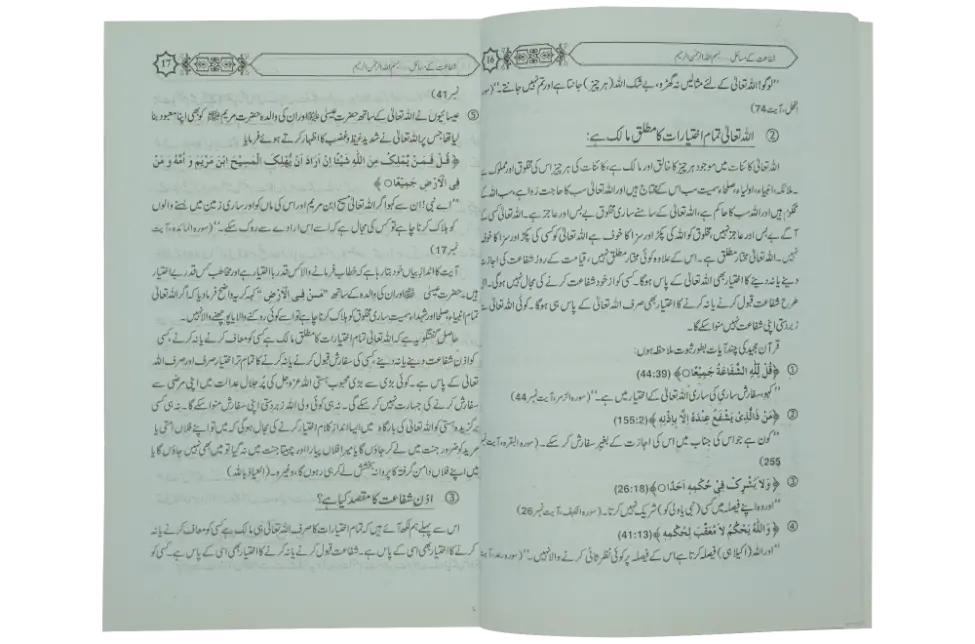 شفاعت کے مسائل .... بسم اللہ الرحمٰن الرحیم
16
”لوگو! اللہ تعالیٰ کے لئے مثالیں نہ گھڑو، بے شک اللہ (ہر چیز) جانتا ہے اور تم نہیں جانتے۔“ (سورہ
النحل، آیت 74)
② اللہ تعالیٰ تمام اختیارات کا مطلق مالک ہے:
اللہ تعالیٰ کائنات میں موجود ہر چیز کا خالق اور مالک ہے، کائنات کی ہر چیز اس کی مخلوق اور مملوک ہے
۔ ملائکہ، انبیاء، اولیاء، صلحاء سمیت سب اس کے محتاج ہیں اور اللہ تعالیٰ سب کا حاجت روا ہے، سب اللہ کے
محکوم ہیں اور اللہ سب کا حاکم ہے، اللہ تعالیٰ کے سامنے ساری مخلوق بے بس اور عاجز ہے۔ اللہ تعالیٰ کسی کے
آگے بے بس اور عاجز نہیں، مخلوق کو اللہ کی پکڑ اور سزا کا خوف ہے اللہ تعالیٰ کو کسی کی پکڑ اور سزا کا خوف
نہیں۔ اللہ تعالیٰ مختار مطلق ہے۔ اس کے علاوہ کوئی مختار مطلق نہیں، قیامت کے روز شفاعت کی اجازت
دینے یا نہ دینے کا اختیار بھی اللہ تعالیٰ کے پاس ہوگا۔ کسی کو از خود شفاعت کرنے کی مجال نہیں ہوگی۔ اسی
طرح شفاعت قبول کرنے یا نہ کرنے کا اختیار بھی صرف اللہ تعالیٰ کے پاس ہی ہوگا۔ کوئی اللہ تعالیٰ سے
زبردستی اپنی شفاعت نہیں منوا سکے گا۔
قرآن مجید کی چند آیات بطور ثبوت ملاحظہ ہوں:
① ﴿قُلْ لِلّٰهِ الشَّفَاعَةُ جَمِيْعًا○﴾ (44:39)
”کہو، سفارش ساری کی ساری اللہ تعالیٰ کے اختیار میں ہے۔“ (سورہ الزمر، آیت نمبر 44)
② ﴿مَنْ ذَا الَّذِيْ يَشْفَعُ عِنْدَهٗ اِلَّا بِاِذْنِهٖ﴾ (155:2)
”کون ہے جو اس کی جناب میں اس کی اجازت کے بغیر سفارش کر سکے۔ (سورہ البقرہ، آیت نمبر
255)
③ ﴿وَلَا يُشْرِكُ فِيْ حُكْمِهٖ اَحَدًا○﴾ (26:18)
”اور وہ اپنے فیصلہ میں کسی (نبی یا ولی کو) شریک نہیں کرتا۔ (سورہ الکہف، آیت نمبر 26)
④ ﴿وَاللّٰهُ يَحْكُمُ لَا مُعَقِّبَ لِحُكْمِهٖ﴾ (41:13)
”اور اللہ (اکیلا ہی) فیصلہ کرتا ہے اس کے فیصلہ پر کوئی نظر ثانی کرنے والا نہیں۔“ (سورہ رعد، آیت
شفاعت کے مسائل .... بسم اللہ الرحمٰن الرحیم
17
نمبر 41)
⑤ عیسائیوں نے اللہ تعالیٰ کے ساتھ حضرت عیسیٰ علیہ السلام اور ان کی والدہ حضرت مریم علیہا السلام کو بھی اپنا معبود بنا
لیا تھا جس پر اللہ تعالیٰ نے شدید غیظ و غضب کا اظہار کرتے ہوئے فرمایا
﴿قُلْ فَمَنْ يَّمْلِكُ مِنَ اللّٰهِ شَيْئًا اِنْ اَرَادَ اَنْ يُّهْلِكَ الْمَسِيْحَ ابْنَ مَرْيَمَ وَ اُمَّهٗ وَ مَنْ
فِى الْاَرْضِ جَمِيْعًا○﴾
”اے نبی! ان سے کہو اگر اللہ تعالیٰ مسیح ابن مریم اور اس کی ماں کو اور ساری زمین میں بسنے والوں
کو ہلاک کرنا چاہے تو کس کی مجال ہے کہ اسے اس ارادے سے روک سکے۔“ (سورہ المائدہ، آیت
نمبر 17)
آیت کا انداز بیاں خود بتا رہا ہے کہ خطاب فرمانے والا کس قدر با اختیار ہے اور مخاطب کس قدر بے اختیار
ہیں۔ حضرت عیسیٰ علیہ السلام اور ان کی والدہ کے ساتھ ”مَنْ فِى الْاَرْضِ“ کہہ کر یہ واضح فرما دیا کہ اگر اللہ تعالیٰ
تمام انبیاء، صلحا اور شہداء سمیت ساری مخلوق کو ہلاک کرنا چاہے تو اسے کوئی روکنے والا یا پوچھنے والا نہیں۔
حاصل گفتگو یہ ہے کہ اللہ تعالیٰ تمام اختیارات کا مطلق مالک ہے کسی کو معاف کرنے یا نہ کرنے، کسی
کو اذن شفاعت دینے یا نہ دینے کسی کی سفارش قبول کرنے یا نہ کرنے کا تمام تر اختیار صرف اور صرف اللہ
تعالیٰ کے پاس ہے۔ کوئی بڑی سے بڑی محبوب ہستی اللہ عزوجل کی پرجلال عدالت میں اپنی مرضی سے
سفارش کرنے کی جسارت نہیں کر سکے گی۔ نہ ہی کوئی ولی اللہ زبردستی اپنی سفارش منوا سکے گا۔ نہ ہی کسی
برگزیدہ ہستی کو اللہ تعالیٰ کی بارگاہ میں ایسا انداز کلام اختیار کرنے کی مجال ہوگی کہ میں تو اپنے فلاں امتی یا
مرید کو ضرور جنت میں لے کر جاؤں گا یا میرا فلاں پیارا اور چہیتا جنت میں نہ گیا تو میں بھی نہیں جاؤں گا یا
میں اپنے فلاں دامن گرفتہ کا پروانہ بخشش لے کر ہی رہوں گا، وغیرہ۔ (العیاذ باللہ)
③ اذن شفاعت کا مقصد کیا ہے؟
اس سے پہلے ہم لکھ آئے ہیں کہ تمام اختیارات کا صرف اللہ تعالیٰ ہی مالک ہے کسی کو معاف کرنے یا نہ
کرنے کا اختیار بھی اسی کے پاس ہے۔ شفاعت قبول کرنے یا نہ کرنے کا اختیار بھی اسی کے پاس ہے۔ کسی کو